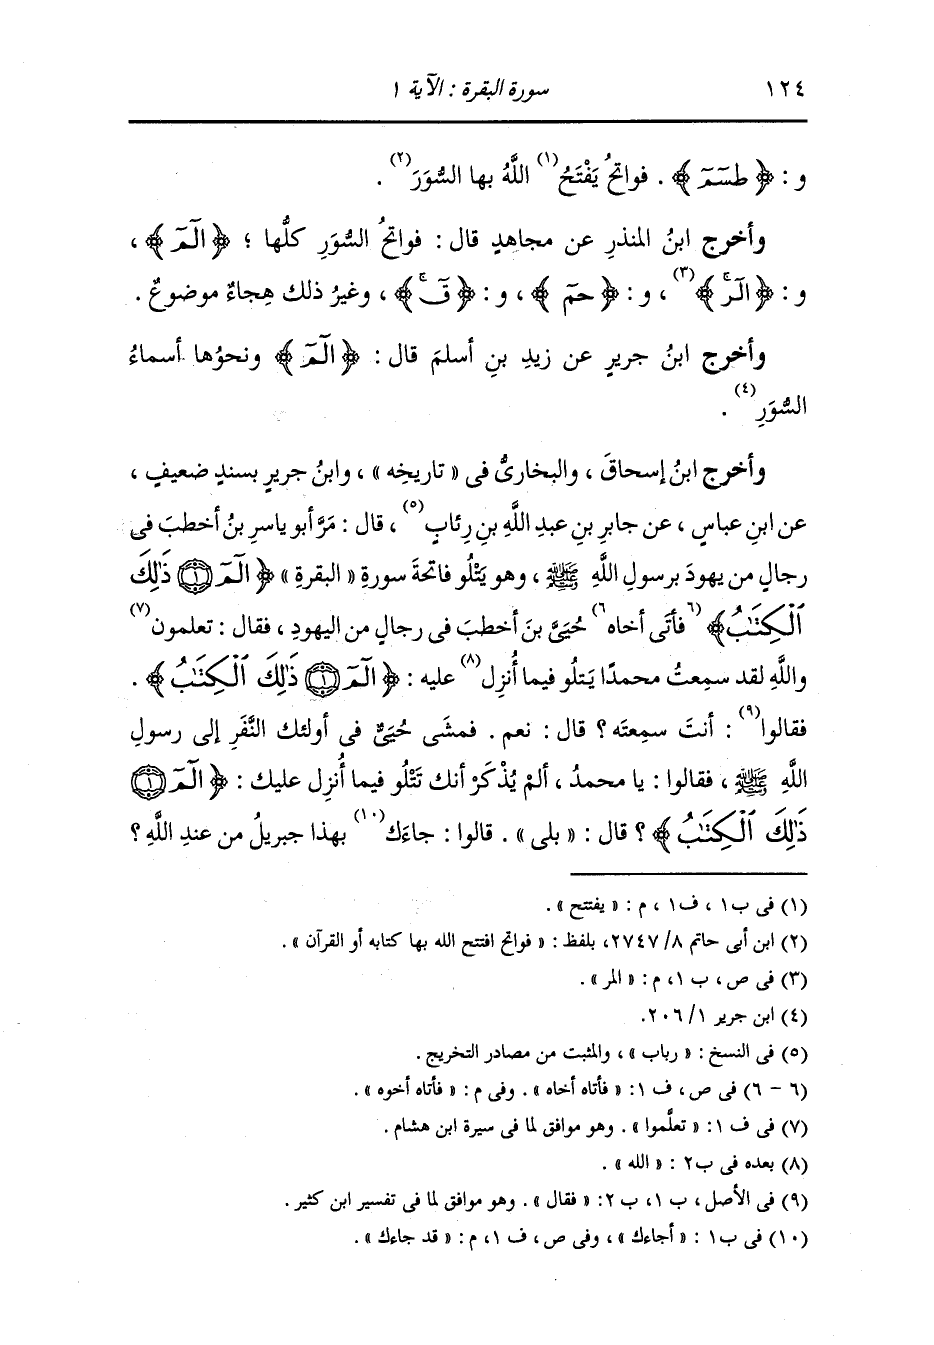 ١٢٤ سورة البقرة : الآية ١
و : ﴿ طسٓمٓ ﴾ . فواتحُ يَفْتَحُ(١) اللَّهُ بها السُّوَرَ(٢) .
وأخرج ابنُ المنذرِ عن مجاهدٍ قال : فواتحُ السُّوَرِ كلُّها ؛ ﴿ الٓمٓ ﴾ ،
و : ﴿ الٓرۚ ﴾(٣) ، و : ﴿ حمٓ ﴾ ، و : ﴿ قٓۚ ﴾ ، وغيرُ ذلك هِجاءٌ موضوعٌ .
وأخرج ابنُ جريرٍ عن زيدِ بنِ أسلمَ قال : ﴿ الٓمٓ ﴾ ونحوُها أسماءُ
السُّوَرِ(٤) .
وأخرج ابنُ إسحاقَ ، والبخارىُّ فى « تاريخِه » ، وابنُ جريرٍ بسندٍ ضعيفٍ ،
عن ابنِ عباسٍ ، عن جابرِ بنِ عبدِ اللَّهِ بنِ رِئابٍ(٥) ، قال : مَرَّ أبو ياسرِ بنُ أخطبَ فى
رجالٍ من يهودَ برسولِ اللَّهِ ﷺ ، وهو يَتْلُو فاتحةَ سورةِ « البقرةِ » ﴿ الٓمٓ ۝١ ذَٰلِكَ
ٱلْكِتَٰبُ ﴾ (٦فأتَى أخاه٦) حُيَىَّ بنَ أخطبَ فى رجالٍ من اليهودِ ، فقال : تعلمون(٧)
واللَّهِ لقد سمِعتُ محمدًا يَتلُو فيما أُنزِل(٨) عليه : ﴿ الٓمٓ ۝١ ذَٰلِكَ ٱلْكِتَٰبُ ﴾ .
فقالوا(٩) : أنتَ سمِعتَه ؟ قال : نعم . فمشَى حُيَىٌّ فى أولئك النَّفَرِ إلى رسولِ
اللَّهِ ﷺ ، فقالوا : يا محمدُ ، ألمْ يُذْكَرْ أنك تَتْلُو فيما أُنزِل عليك : ﴿ الٓمٓ ۝١
ذَٰلِكَ ٱلْكِتَٰبُ ﴾ ؟ قال : « بلى » . قالوا : جاءَك(١٠) بهذا جبريلُ من عندِ اللَّهِ ؟
(١) فى ب١ ، ف١ ، م : « يفتتح » .
(٢) ابن أبى حاتم ٨/ ٢٧٤٧، بلفظ : « فواتح افتتح الله بها كتابه أو القرآن » .
(٣) فى ص ، ب ١، م : « المر » .
(٤) ابن جرير ١/ ٢٠٦.
(٥) فى النسخ : « رباب » ، والمثبت من مصادر التخريج .
(٦ - ٦) فى ص ، ف ١: « فأتاه أخاه » . وفى م : « فأتاه أخوه » .
(٧) فى ف ١: « تعلَّموا » . وهو موافق لما فى سيرة ابن هشام .
(٨) بعده فى ب٢ : « الله » .
(٩) فى الأصل ، ب ١، ب ٢: « فقال » . وهو موافق لما فى تفسير ابن كثير .
(١٠) فى ب١ : « أجاءك » ، وفى ص ، ف ١، م : « قد جاءك » .